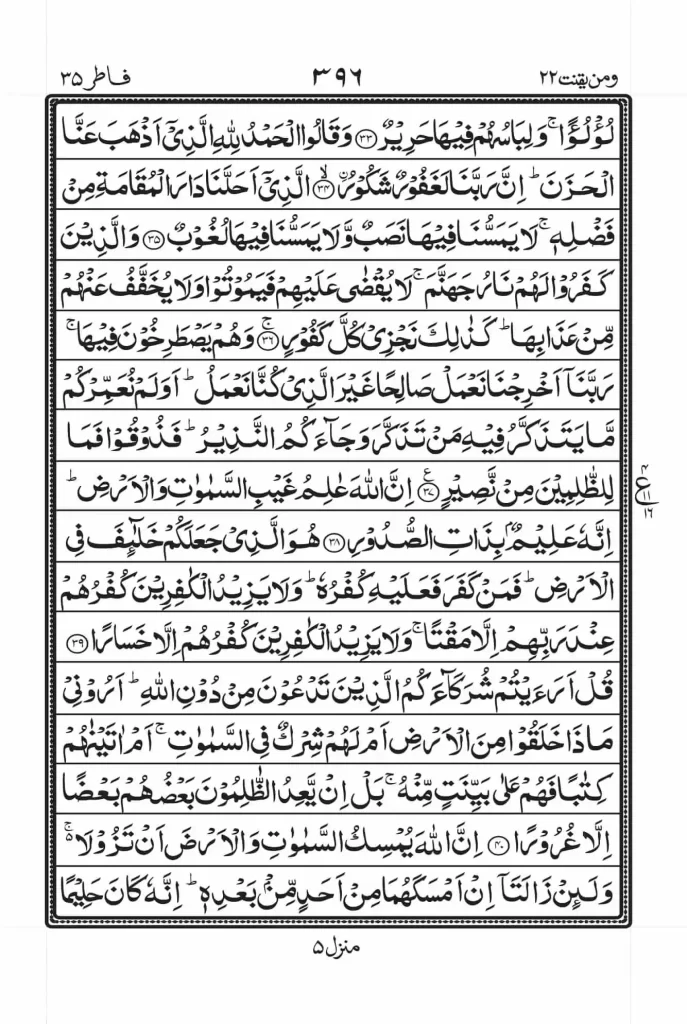 ومن یقنت ۲۲ ۳۹۶ فاطر ۳۵
لُؤْلُؤًا ۚ وَلِبَاسُهُمْ فِيْهَا حَرِيْرٌ ﴿۳۳﴾ وَقَالُوا الْحَمْدُ لِلّٰهِ الَّذِيْٓ اَذْهَبَ عَنَّا
الْحَزَنَ ؕ اِنَّ رَبَّنَا لَغَفُوْرٌ شَكُوْرُۨ ﴿۳۴﴾ۙ الَّذِيْٓ اَحَلَّنَا دَارَ الْمُقَامَةِ مِنْ
فَضْلِهٖ ۚ لَا يَمَسُّنَا فِيْهَا نَصَبٌ وَّلَا يَمَسُّنَا فِيْهَا لُغُوْبٌ ﴿۳۵﴾ وَالَّذِيْنَ
كَفَرُوْا لَهُمْ نَارُ جَهَنَّمَ ۚ لَا يُقْضٰى عَلَيْهِمْ فَيَمُوْتُوْا وَلَا يُخَفَّفُ عَنْهُمْ
مِّنْ عَذَابِهَا ؕ كَذٰلِكَ نَجْزِيْ كُلَّ كَفُوْرٍ ﴿۳۶﴾ۚ وَهُمْ يَصْطَرِخُوْنَ فِيْهَا ۚ
رَبَّنَآ اَخْرِجْنَا نَعْمَلْ صَالِحًا غَيْرَ الَّذِيْ كُنَّا نَعْمَلُ ؕ اَوَلَمْ نُعَمِّرْكُمْ
مَّا يَتَذَكَّرُ فِيْهِ مَنْ تَذَكَّرَ وَجَآءَكُمُ النَّذِيْرُ ؕ فَذُوْقُوْا فَمَا
لِلظّٰلِمِيْنَ مِنْ نَّصِيْرٍ ﴿۳۷﴾ع اِنَّ اللّٰهَ عٰلِمُ غَيْبِ السَّمٰوٰتِ وَالْاَرْضِ ؕ
۴ ع ۱۱ ۱۶
اِنَّهٗ عَلِيْمٌۢ بِذَاتِ الصُّدُوْرِ ﴿۳۸﴾ هُوَ الَّذِيْ جَعَلَكُمْ خَلٰٓئِفَ فِي
الْاَرْضِ ؕ فَمَنْ كَفَرَ فَعَلَيْهِ كُفْرُهٗ ؕ وَلَا يَزِيْدُ الْكٰفِرِيْنَ كُفْرُهُمْ
عِنْدَ رَبِّهِمْ اِلَّا مَقْتًا ۚ وَلَا يَزِيْدُ الْكٰفِرِيْنَ كُفْرُهُمْ اِلَّا خَسَارًا ﴿۳۹﴾
قُلْ اَرَءَيْتُمْ شُرَكَآءَكُمُ الَّذِيْنَ تَدْعُوْنَ مِنْ دُوْنِ اللّٰهِ ؕ اَرُوْنِيْ
مَاذَا خَلَقُوْا مِنَ الْاَرْضِ اَمْ لَهُمْ شِرْكٌ فِي السَّمٰوٰتِ ۚ اَمْ اٰتَيْنٰهُمْ
كِتٰبًا فَهُمْ عَلٰى بَيِّنَتٍ مِّنْهُ ۚ بَلْ اِنْ يَّعِدُ الظّٰلِمُوْنَ بَعْضُهُمْ بَعْضًا
اِلَّا غُرُوْرًا ﴿۴۰﴾ اِنَّ اللّٰهَ يُمْسِكُ السَّمٰوٰتِ وَالْاَرْضَ اَنْ تَزُوْلَا ۵ۚ
وَلَئِنْ زَالَتَآ اِنْ اَمْسَكَهُمَا مِنْ اَحَدٍ مِّنْۢ بَعْدِهٖ ؕ اِنَّهٗ كَانَ حَلِيْمًا
منزل ۵